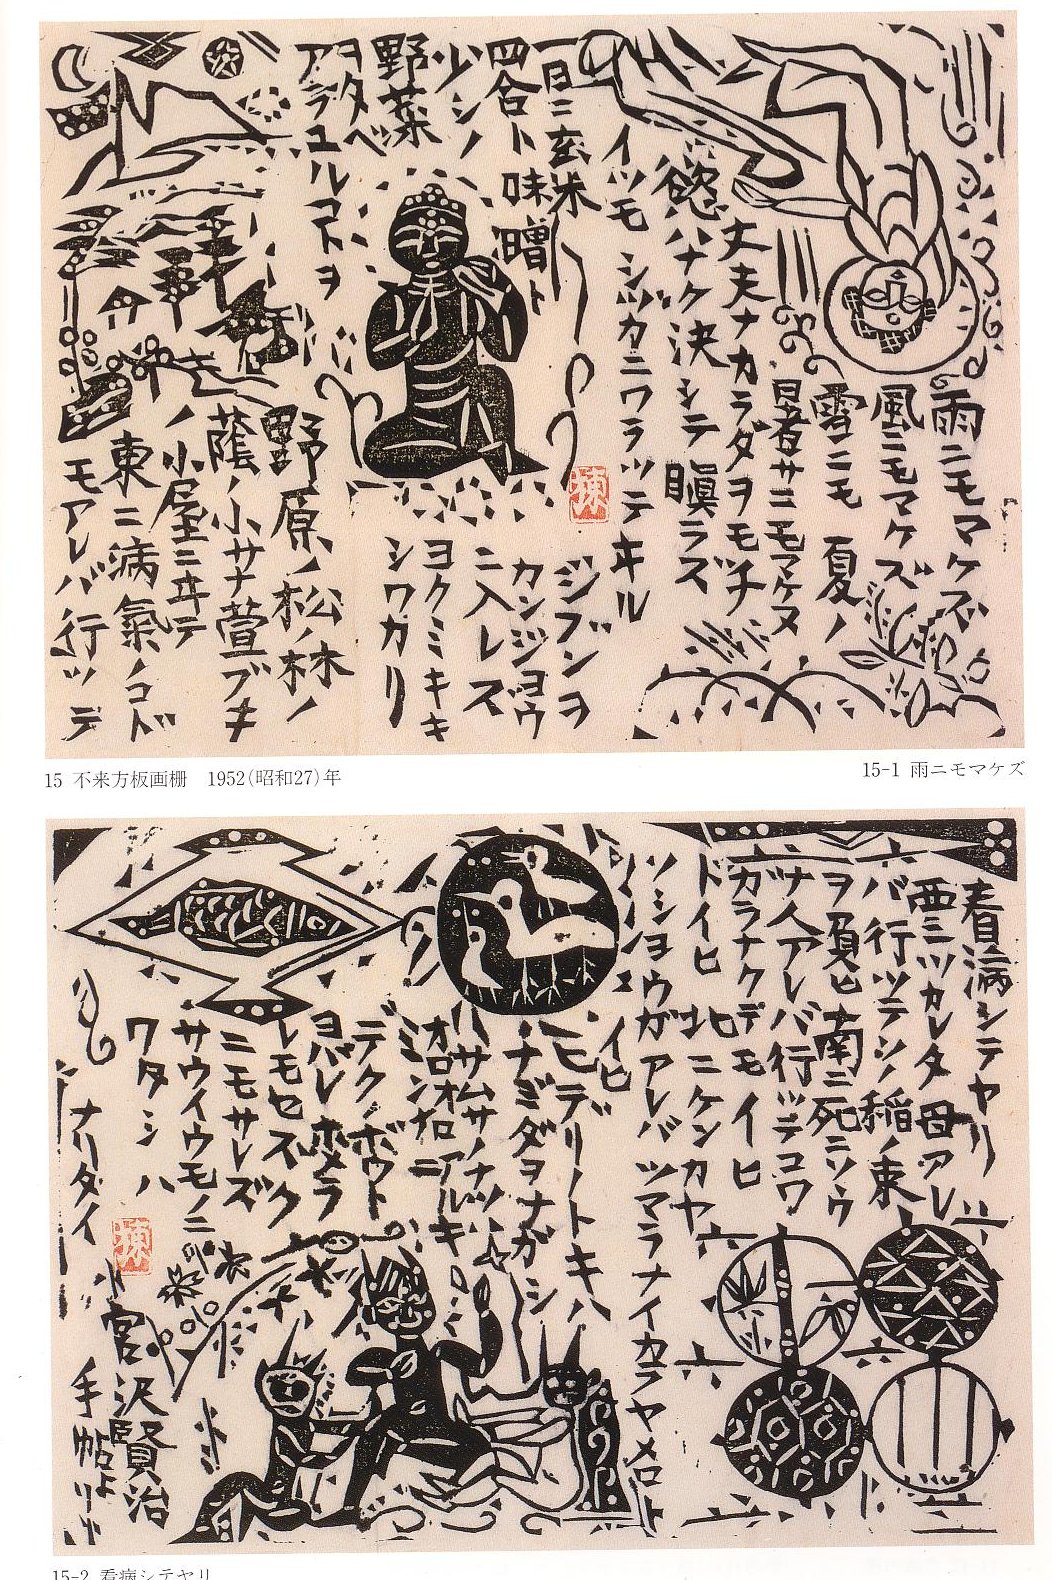 雨ニモマケズ
風ニモマケズ
雪ニモ 夏ノ
暑サニモマケヌ
丈夫ナカラダヲモチ
慾ハナク決シテ瞋ラズ
イツモ シヅカニワラッテヰル
一日ニ玄米
四合ト味噌ト
少シノ
野菜
ヲタベ
アラユルコトヲ
ジブンヲ
カンジヨウ
ニ入レズ
ヨクミキキ
シワカリ
野原ノ松ノ林ノ
蔭ノ小サナ萱ブキ
ノ小屋ニヰテ
東ニ病氣ノコド
モアレバ行ッテ
15 不来方板画柵 1952(昭和27)年
15-1 雨ニモマケズ
看病シテヤリ
西ニツカレタ母アレ
バ行ッテソノ稲ノ束
ヲ負ヒ南ニ死ニソウ
ナ人アレバ行ッテコワ
ガラナクテモイヒ
ドイヒ 北ニケンカヤ
ソシヨウガアレバ ツマラナイカラヤメロト
イヒ
ヒデリノトキハ
ナミダヲナガシ
サムサノナツハ
オロオロアルキ
ミンナニ
デクノボウト
ヨバレ ホメラ
レモセズク
ニモサレズ
サウイウモノニ
ワタシハ
ナリタイ
宮沢賢治
手帖より
15-2 看病シテヤリ